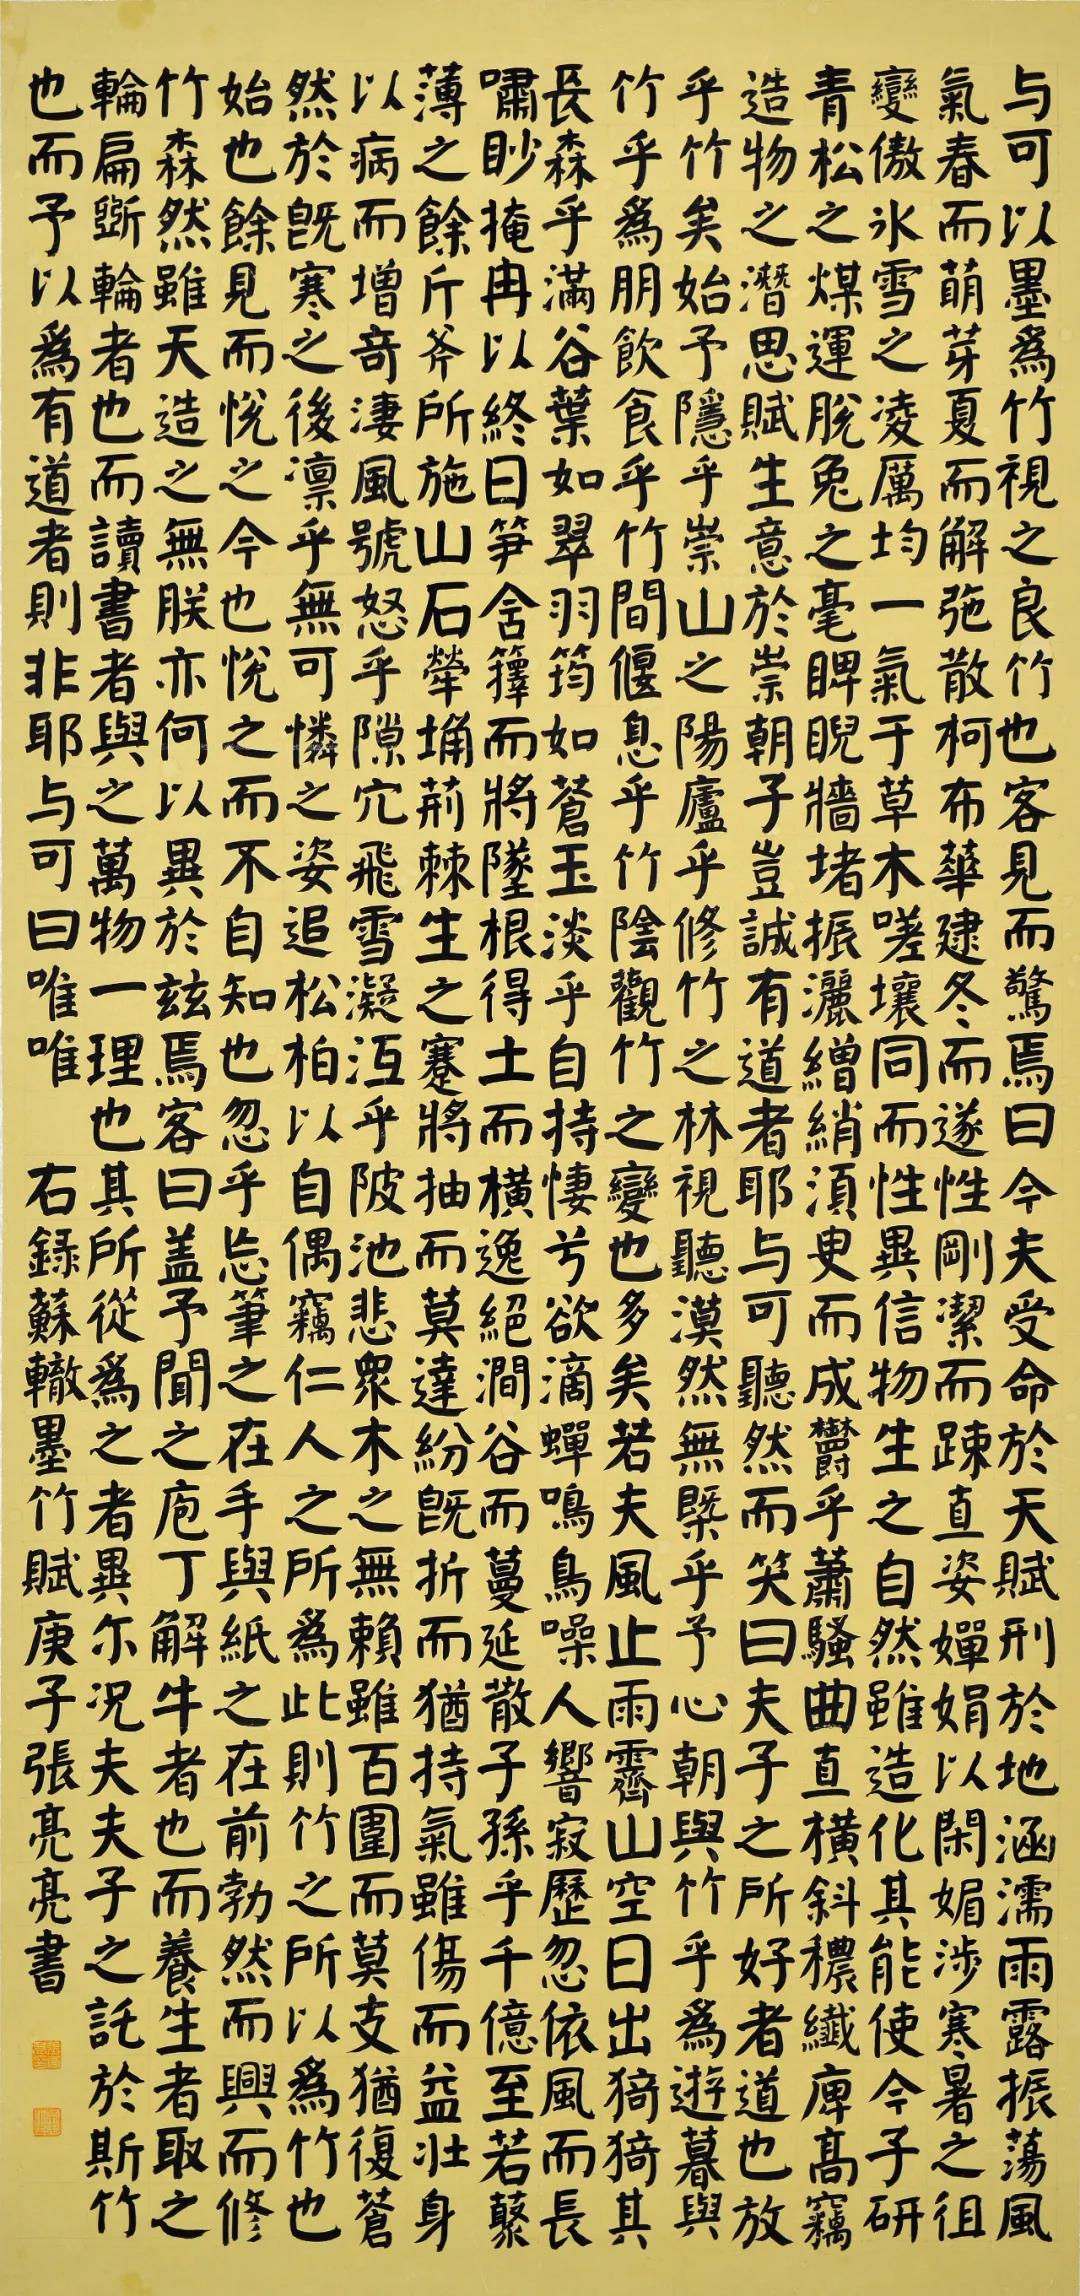 与可以墨爲竹視之良竹也客見而驚焉曰今夫受命於天賦刑於地涵濡雨露振蕩風
氣春而萌芽夏而解弛散柯布華逮冬而遂性剛潔而踈直姿嬋娟以閑媚涉寒暑之徂
變傲氷雪之凌厲均一氣于草木嗟壤同而性異信物生之自然雖造化其能使今子研
青松之煤運脫兔之毫睥睨牆堵振灑繒綃湏臾而成欝乎蕭騷曲直橫斜穠纖庳高竊
造物之潛思賦生意於崇朝子豈誠有道者耶与可聽然而笑曰夫子之所好者道也放
乎竹矣始予隱乎崇山之陽廬乎修竹之林視聽漠然無槩乎予心朝與竹乎爲遊暮與
竹乎爲朋飲食乎竹間偃息乎竹陰觀竹之變也多矣若夫風止雨霽山空日出猗猗其
長森乎滿谷葉如翠羽筠如蒼玉淡乎自持悽兮欲滴蟬鳴鳥噪人響寂歷忽依風而長
嘯眇掩冉以終日笋含籜而將墜根得土而橫逸絕澗谷而蔓延散子孫乎千億至若藂
薄之餘斤斧所施山石犖埆荊棘生之蹇將抽而莫達紛旣折而猶持氣雖傷而益壯身
以病而增奇淒風號怒乎隙穴飛雪凝沍乎陂池悲衆木之無賴雖百圍而莫支猶復蒼
然於旣寒之後凛乎無可憐之姿追松柏以自偶竊仁人之所爲此則竹之所以爲竹也
始也餘見而悅之今也悅之而不自知也忽乎忘筆之在手與紙之在前勃然而興而修
竹森然雖天造之無朕亦何以異於玆焉客曰盖予聞之庖丁解牛者也而養生者取之
輪扁斲輪者也而讀書者與之萬物一理也其所從爲之者異尔况夫夫子之託於斯竹
也而予以爲有道者則非耶与可曰唯唯 右録蘇轍墨竹賦庚子張亮亮書